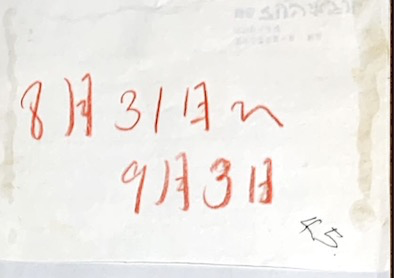 8月31日〜
9月3日